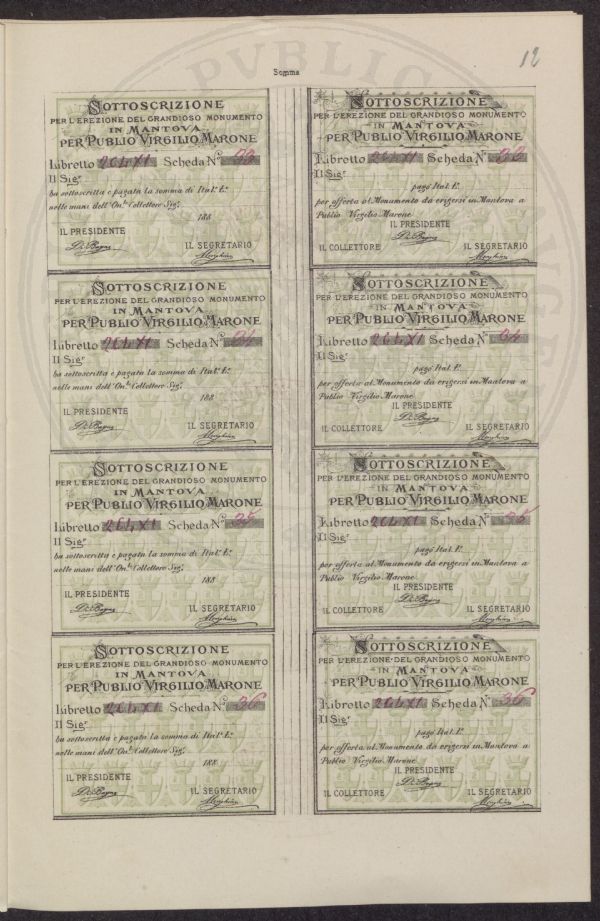 12
Somma
SOTTOSCRIZIONE
PER L'EREZIONE DEL GRANDIOSO MONUMENTO
IN MANTOVA
PER PUBLIO VIRGILIO MARONE
Libretto Scheda N.º 33
Il Sig.r
ha sottoscritta e pagata la somma di Ital. L.e
nelle mani dell' On.le Collettore Sig.r
188
IL PRESIDENTE
IL SEGRETARIO
SOTTOSCRIZIONE
PER L'EREZIONE DEL GRANDIOSO MONUMENTO
IN MANTOVA
PER PUBLIO VIRGILIO MARONE
Libretto Scheda N.º 33
Il Sig.r
pagò Ital. L.e
per offerta al Monumento da erigersi in Mantova a
Publio Virgilio Marone
IL PRESIDENTE
IL COLLETTORE IL SEGRETARIO
SOTTOSCRIZIONE
PER L'EREZIONE DEL GRANDIOSO MONUMENTO
IN MANTOVA
PER PUBLIO VIRGILIO MARONE
Libretto Scheda N.º 34
Il Sig.r
ha sottoscritta e pagata la somma di Ital. L.e
nelle mani dell' On.le Collettore Sig.r
188
IL PRESIDENTE
IL SEGRETARIO
SOTTOSCRIZIONE
PER L'EREZIONE DEL GRANDIOSO MONUMENTO
IN MANTOVA
PER PUBLIO VIRGILIO MARONE
Libretto Scheda N.º 34
Il Sig.r
pagò Ital. L.e
per offerta al Monumento da erigersi in Mantova a
Publio Virgilio Marone
IL PRESIDENTE
IL COLLETTORE IL SEGRETARIO
SOTTOSCRIZIONE
PER L'EREZIONE DEL GRANDIOSO MONUMENTO
IN MANTOVA
PER PUBLIO VIRGILIO MARONE
Libretto Scheda N.º 35
Il Sig.r
ha sottoscritta e pagata la somma di Ital. L.e
nelle mani dell' On.le Collettore Sig.r
188
IL PRESIDENTE
IL SEGRETARIO
SOTTOSCRIZIONE
PER L'EREZIONE DEL GRANDIOSO MONUMENTO
IN MANTOVA
PER PUBLIO VIRGILIO MARONE
Libretto Scheda N.º 35
Il Sig.r
pagò Ital. L.e
per offerta al Monumento da erigersi in Mantova a
Publio Virgilio Marone
IL PRESIDENTE
IL COLLETTORE IL SEGRETARIO
SOTTOSCRIZIONE
PER L'EREZIONE DEL GRANDIOSO MONUMENTO
IN MANTOVA
PER PUBLIO VIRGILIO MARONE
Libretto Scheda N.º 36
Il Sig.r
ha sottoscritta e pagata la somma di Ital. L.e
nelle mani dell' On.le Collettore Sig.r
188
IL PRESIDENTE
IL SEGRETARIO
SOTTOSCRIZIONE
PER L'EREZIONE DEL GRANDIOSO MONUMENTO
IN MANTOVA
PER PUBLIO VIRGILIO MARONE
Libretto Scheda N.º 36
Il Sig.r
pagò Ital. L.e
per offerta al Monumento da erigersi in Mantova a
Publio Virgilio Marone
IL PRESIDENTE
IL COLLETTORE IL SEGRETARIO